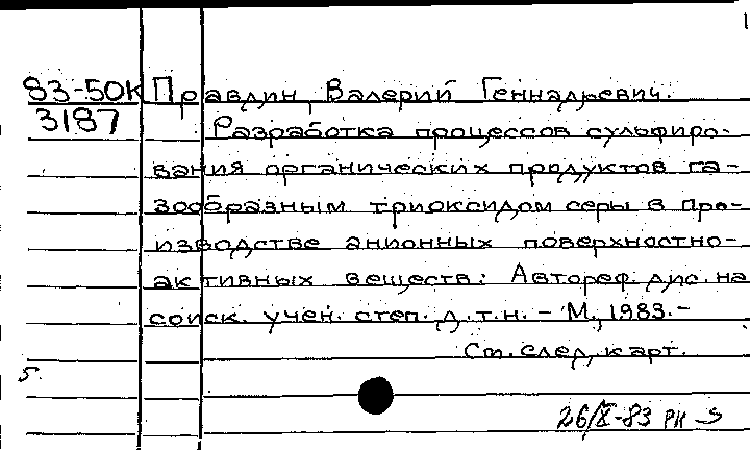 1
83-50К Правдин, Валерий Геннадьевич.
3187 Разработка процессов сульфиро-
вания органических продуктов га-
зообразным триоксидом серы в про-
изводстве анионных поверхностно-
активных веществ: Автореф. дис. на
соиск. учен. степ. д.т.н. - М., 1983.-
См. след. карт.
5.
26/X-83 РК